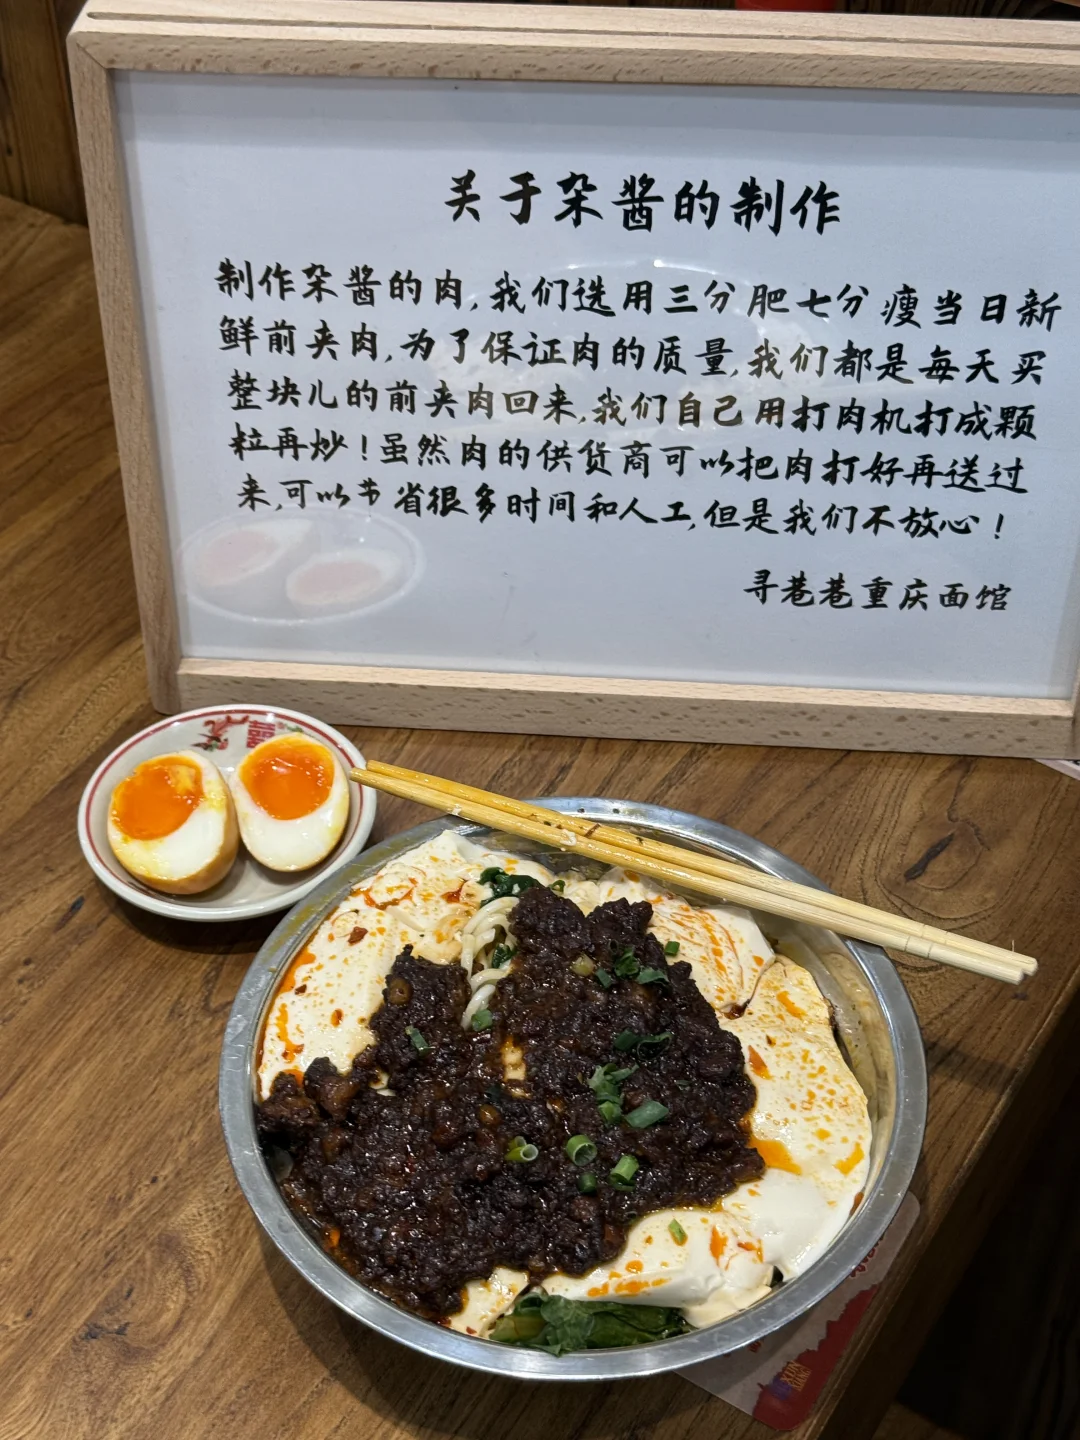 关于杂酱的制作
制作杂酱的肉,我们选用三分肥七分瘦当日新
鲜前夹肉,为了保证肉的质量,我们都是每天买
整块儿的前夹肉回来,我们自己用打肉机打成颗
粒再炒！虽然肉的供货商可以把肉打好再送过
来,可以节省很多时间和人工,但是我们不放心！
寻巷巷重庆面馆
囍